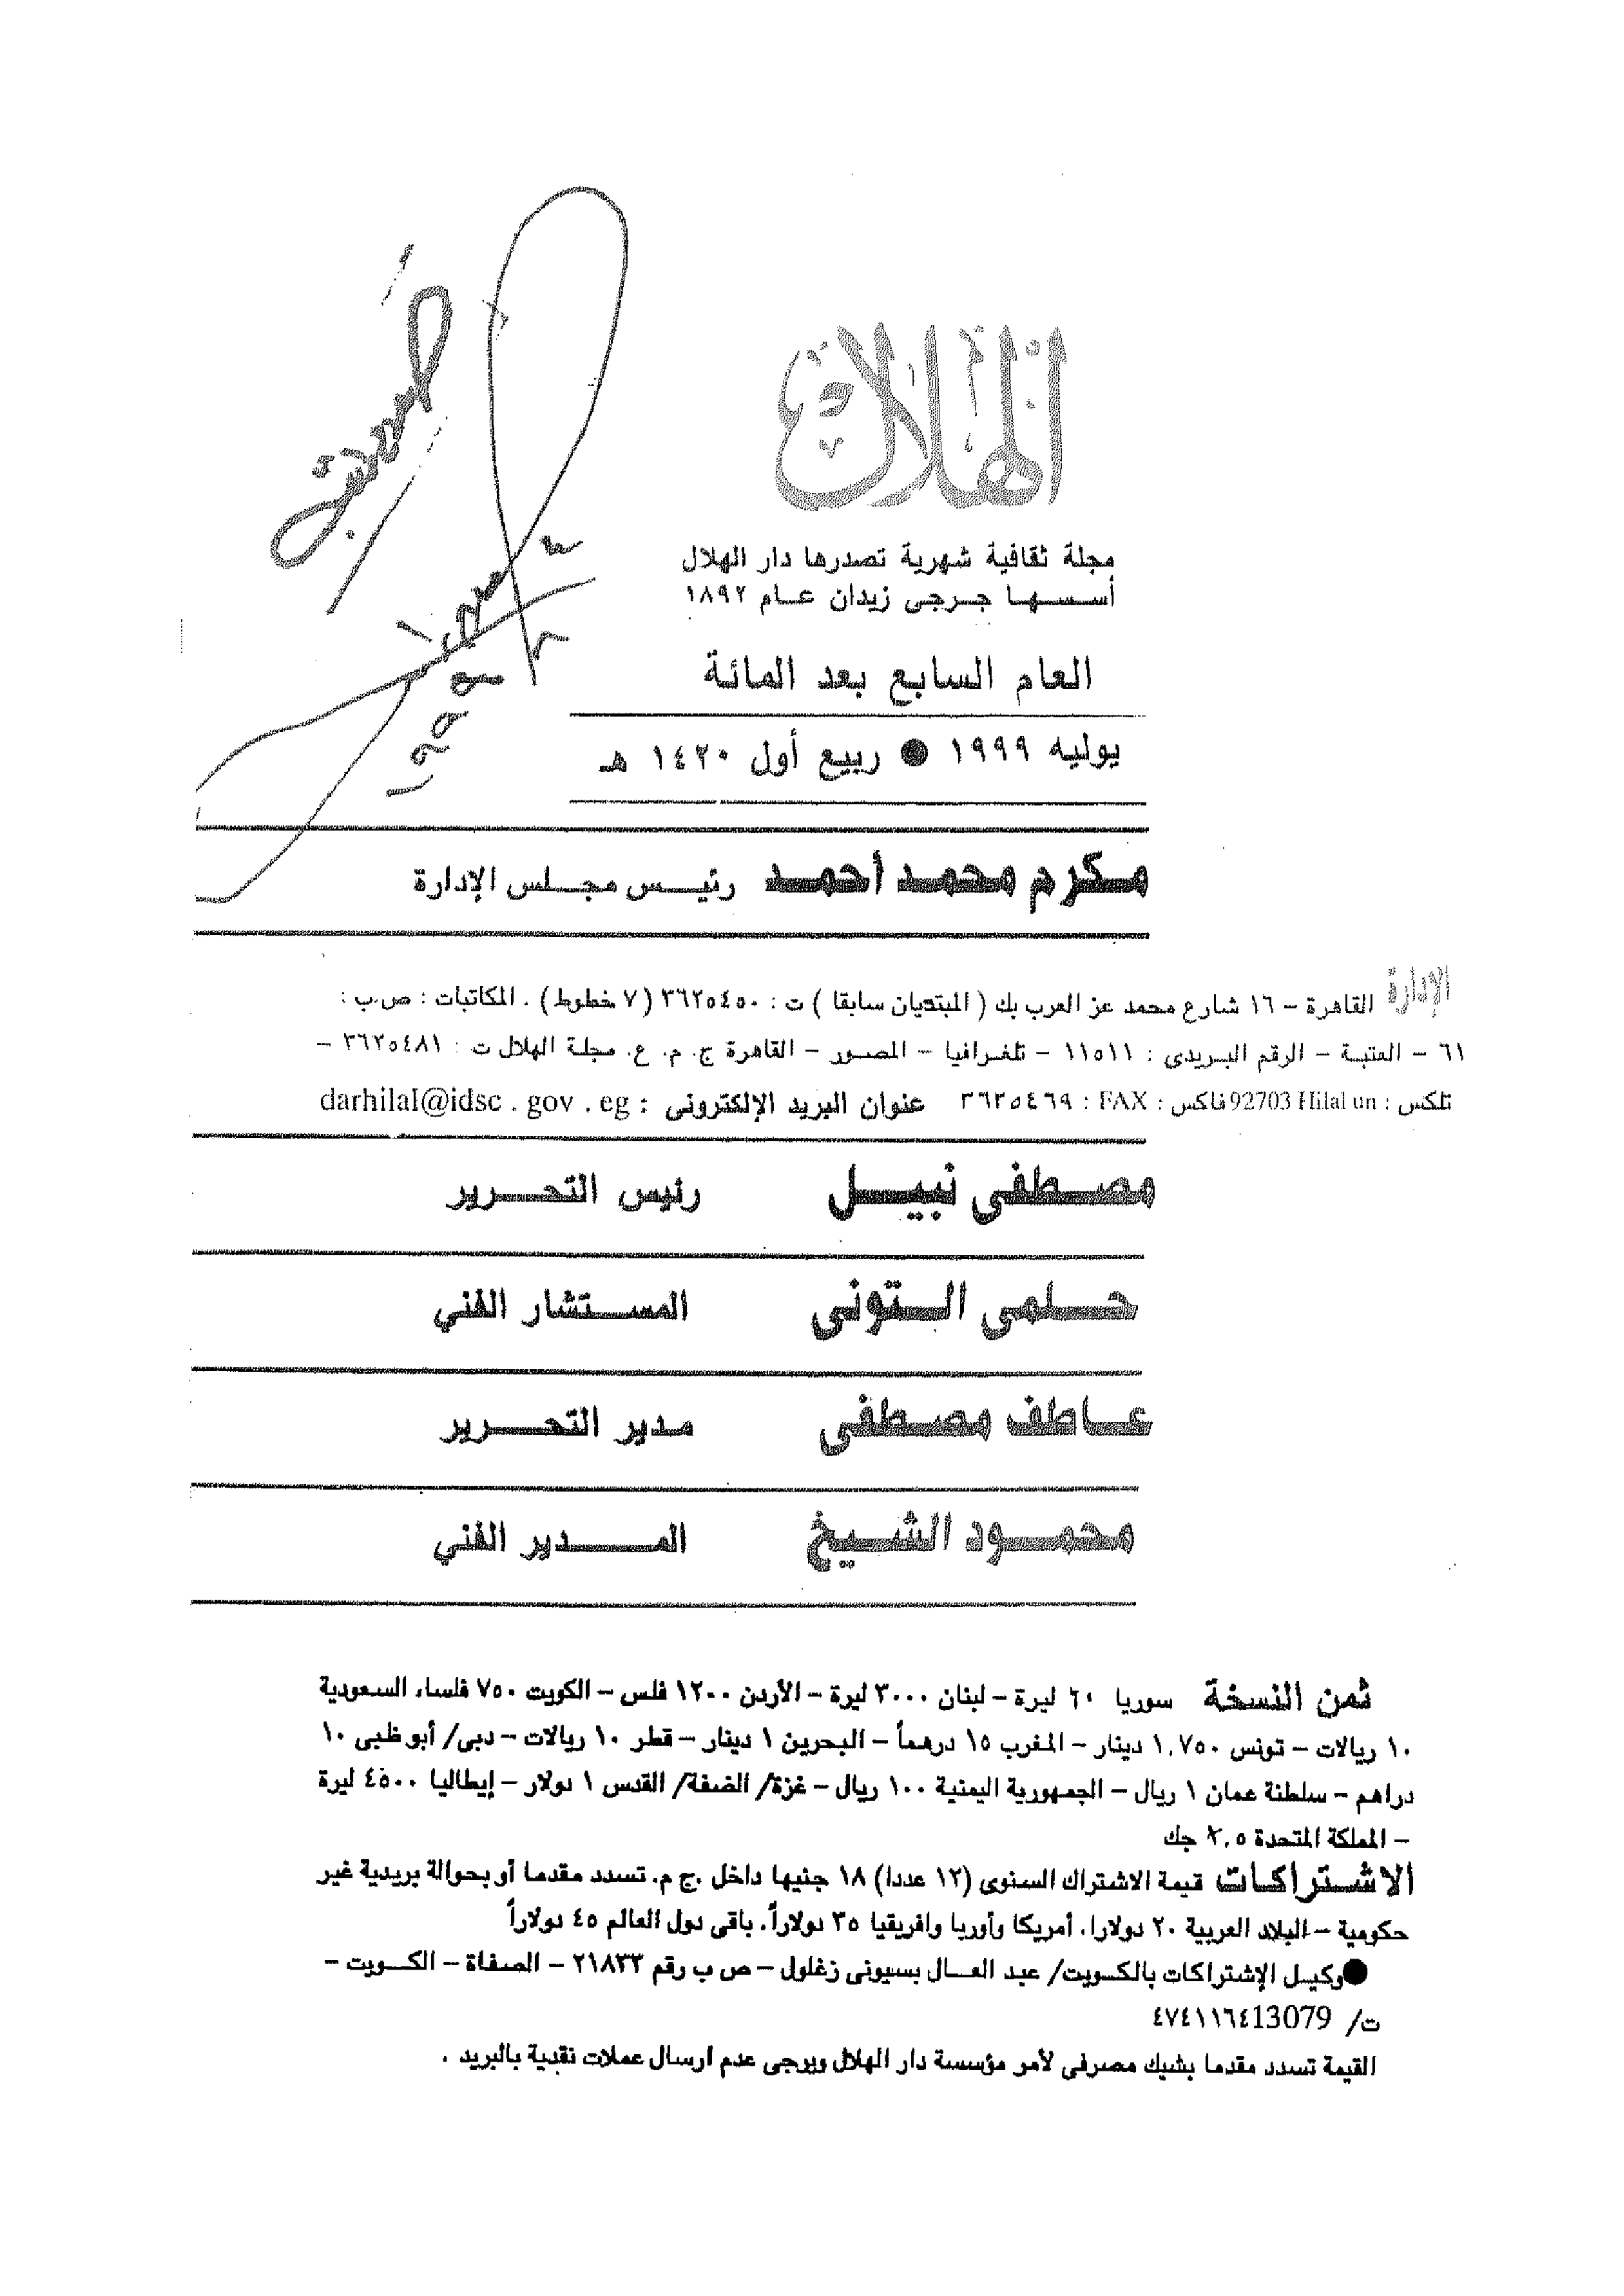 الهلال
مجلة ثقافية شهرية تصدرها دار الهلال
أسسها جرجى زيدان عام ١٨٩٢
العام السابع بعد المائة
يوليه ١٩٩٩ ● ربيع أول ١٤٢٠ هـ
مكرم محمد أحمد رئيس مجلس الإدارة
الإدارة القاهرة – ١٦ شارع محمد عز العرب بك ( المبتديان سابقا ) ت : ٣٦٢٥٤٥٠ (٧ خطوط) . المكاتبات : ص.ب :
٦١ – العتبة – الرقم البريدى : ١١٥١١ – تلغرافيا – المصور – القاهرة ج. م. ع. مجلة الهلال ت : ٣٦٢٥٤٨١ –
تلكس : 92703 Hilal un فاكس : FAX : ٣٦٢٥٤٦٩ عنوان البريد الإلكترونى : darhilal@idsc . gov . eg
مصطفى نبيل رئيس التحرير
حلمى التونى المستشار الفني
عاطف مصطفى مدير التحرير
محمود الشيخ المدير الفني
ثمن النسخة سوريا ٦٠ ليرة – لبنان ٣٠٠٠ ليرة – الأردن ١٢٠٠ فلس – الكويت ٧٥٠ فلساء السعودية
١٠ ريالات – تونس ١,٧٥٠ دينار – المغرب ١٥ درهماً – البحرين ١ دينار – قطر ١٠ ريالات – دبى/ أبو ظبى ١٠
دراهم – سلطنة عمان ١ ريال – الجمهورية اليمنية ١٠٠ ريال – غزة/ الضفة/ القدس ١ دولار – إيطاليا ٤٥٠٠ ليرة
– المملكة المتحدة ٢,٥ جك
الاشتراكات قيمة الاشتراك السنوى (١٢ عددا) ١٨ جنيها داخل .ج م. تسدد مقدما أو بحوالة بريدية غير
حكومية – البلاد العربية ٢٠ دولارا. أمريكا وأوربا وافريقيا ٣٥ دولاراً. باقى دول العالم ٤٥ دولاراً
●وكيل الإشتراكات بالكويت/ عبد العال بسيونى زغلول – ص ب رقم ٢١٨٣٣ – الصفاة – الكويت –
ت/ 13079 ٤٧٤١١٦٤
القيمة تسدد مقدما بشيك مصرفى لأمر مؤسسة دار الهلال ويرجى عدم ارسال عملات نقدية بالبريد .